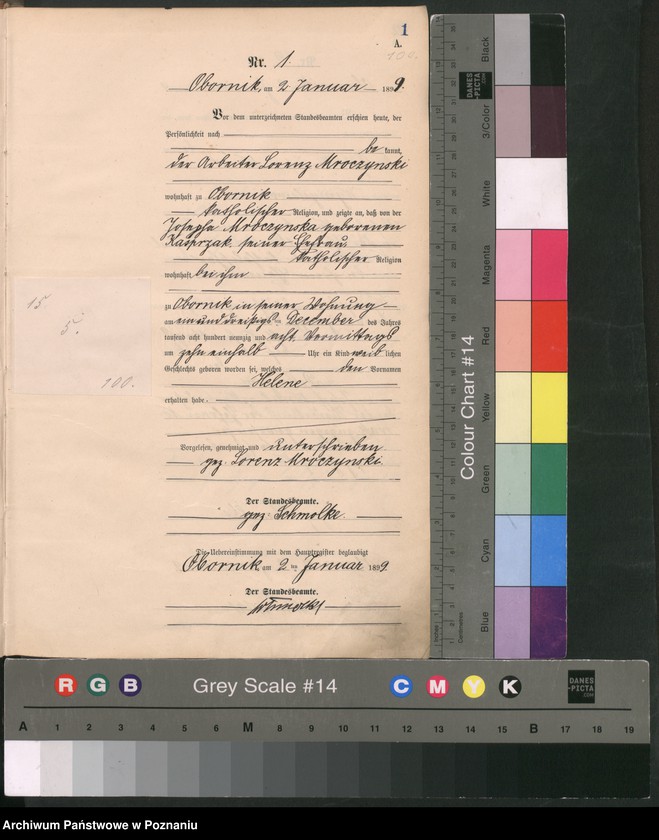 1
A.
100.
Nr. 1
Obornik, am 2 Januar 1899.
Vor dem unterzeichneten Standesbeamten erschien heute, der
Persönlichkeit nach
bekannt,
der Arbeiter Lorenz Mroczynski
wohnhaft zu Obornik
katholischer Religion, und zeigte an, daß von der
Josepha Mroczynska geborenen
Kasprzak, seiner Ehefrau
katholischer Religion
wohnhaft bei ihm
zu Obornik in seiner Wohnung
am einunddreißigsten December des Jahres
tausend acht hundert neunzig und acht Vormittags
um zehn einhalb Uhr ein Kind weiblichen
Geschlechts geboren worden sei, welches den Vornamen
Helene
erhalten habe.
Vorgelesen, genehmigt und unterschrieben
gez. Lorenz Mroczynski
Der Standesbeamte.
gez. Schmolke.
Die Uebereinstimmung mit dem Hauptregister beglaubigt
Obornik am 2ten Januar 1899
Der Standesbeamte.
Schmolke
15
5.
100.
Colour Chart #14
Black
3/Color
White
Magenta
Red
Yellow
Green
Cyan
Blue
DANES
-PICTA
Inches
Centimetres
R G B Grey Scale #14 C M Y K
DANES
-PICTA
A 1 2 3 4 5 6 M 8 9 10 11 12 13 14 15 B 17 18 19
Archiwum Państwowe w Poznaniu